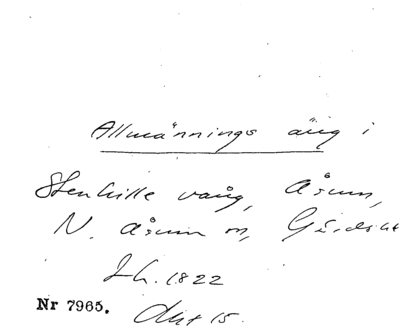 Allmännings äng i
Stenkille vång, Åsum,
N. Åsum m, Gärds
1822
Nr 7965.
Akt 15.